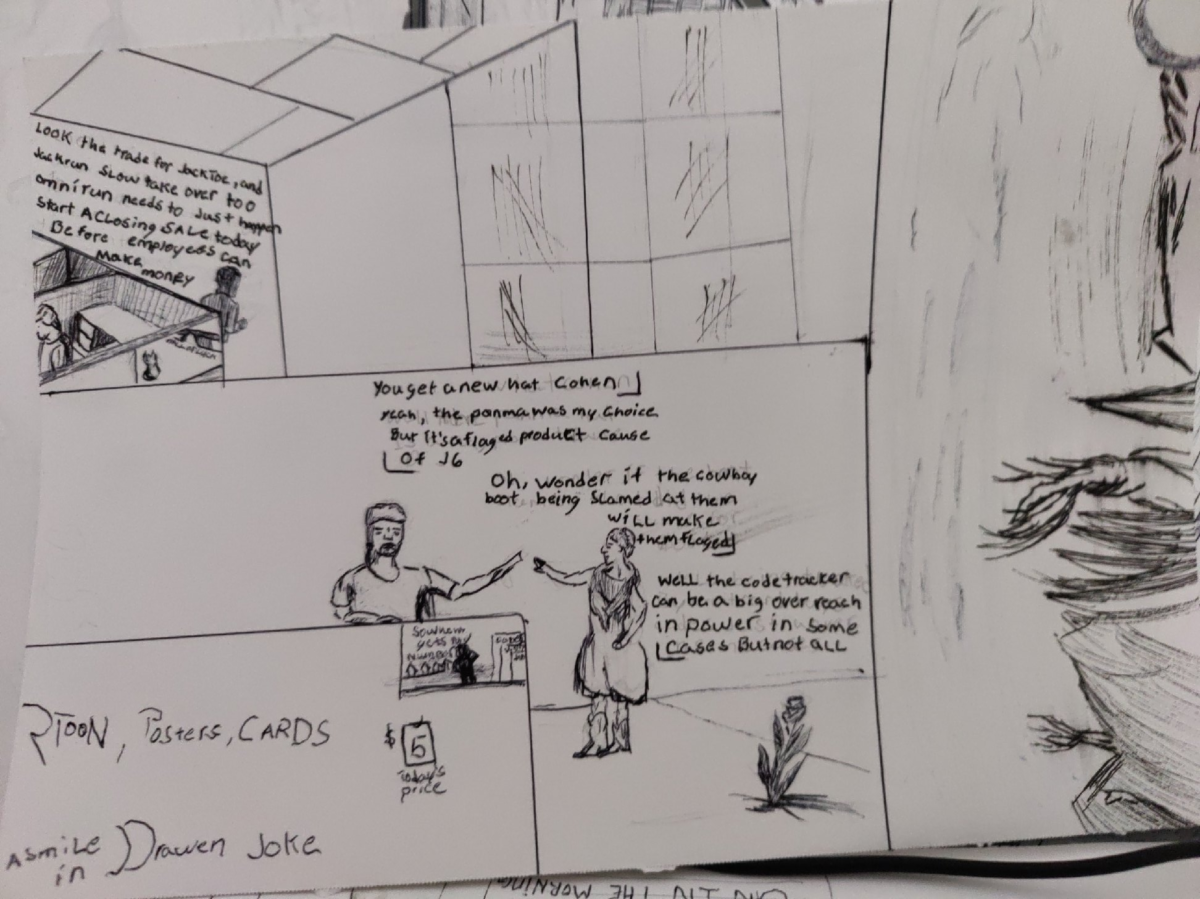 Look the trade for JackToe, and
Jackrun slow take over too
omnirun needs to Just happen
Start A Closing SALE today
Before employees can
Make money
You get a new hat Cohen
yeah, the panma was my choice
But It's a flaged product cause
of J6
Oh, wonder if the cowboy
boot being slamed at them
will make
them flaged
Well the code tracker
can be a big over reach
in power in some
cases But not all
TOON, Posters, CARDS
$ 5
Today's
price
A smile
in Drawen Joke
IN THE MORNING